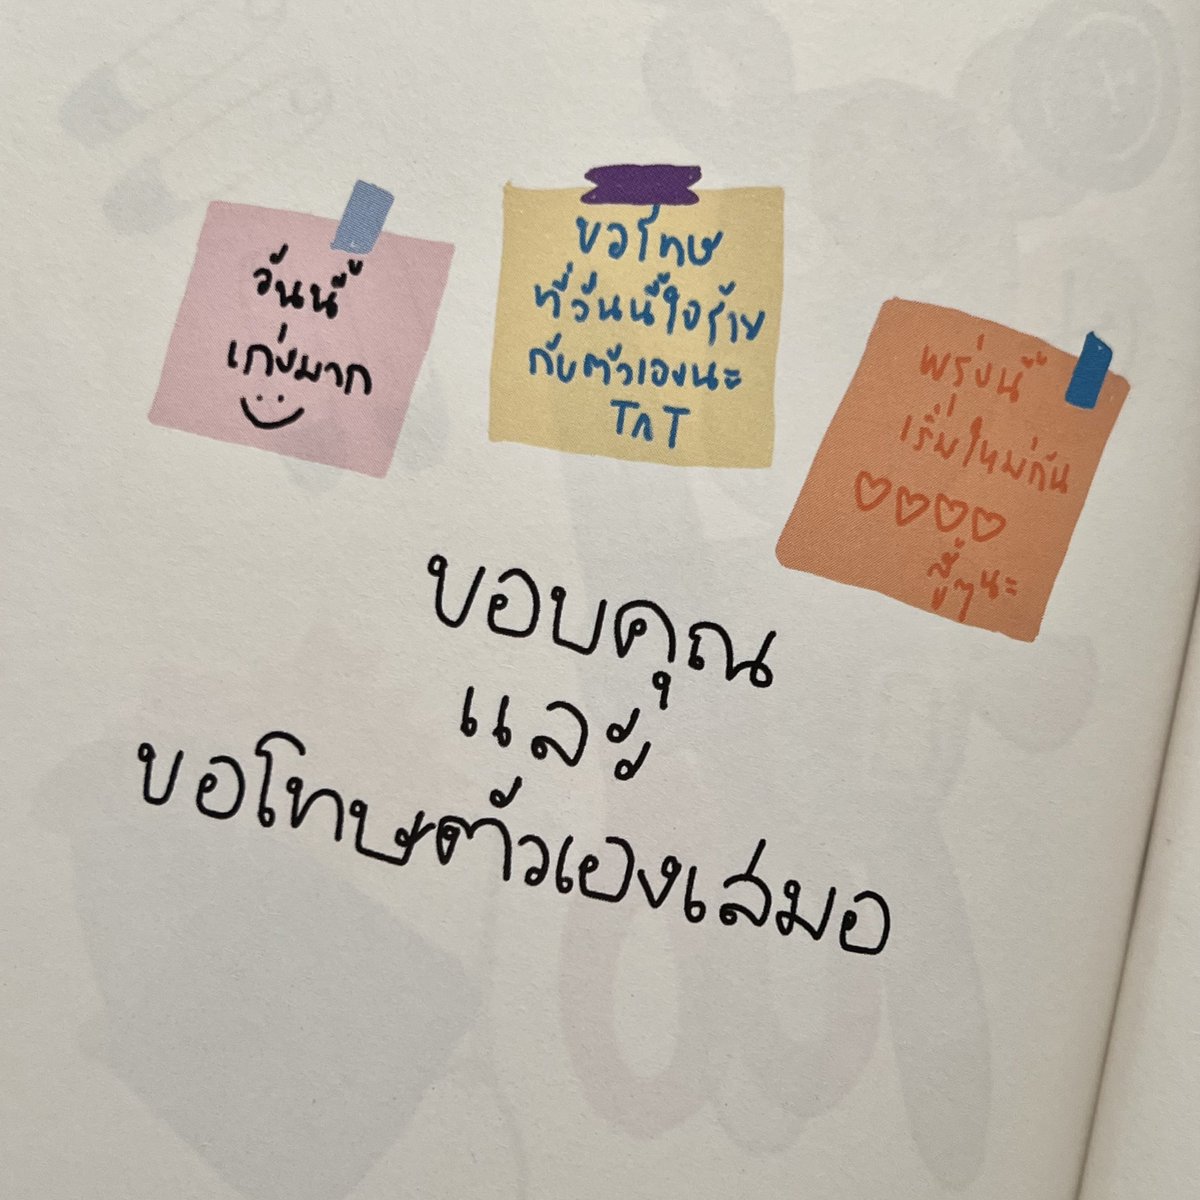 วันนี้
เก่งมาก
ขอโทษ
ที่วันนี้ใจร้าย
กับตัวเองนะ
TnT
พรุ่งนี้
เริ่มใหม่กัน
♡♡♡♡
สู้ๆนะ
ขอบคุณ
และ
ขอโทษตัวเองเสมอ